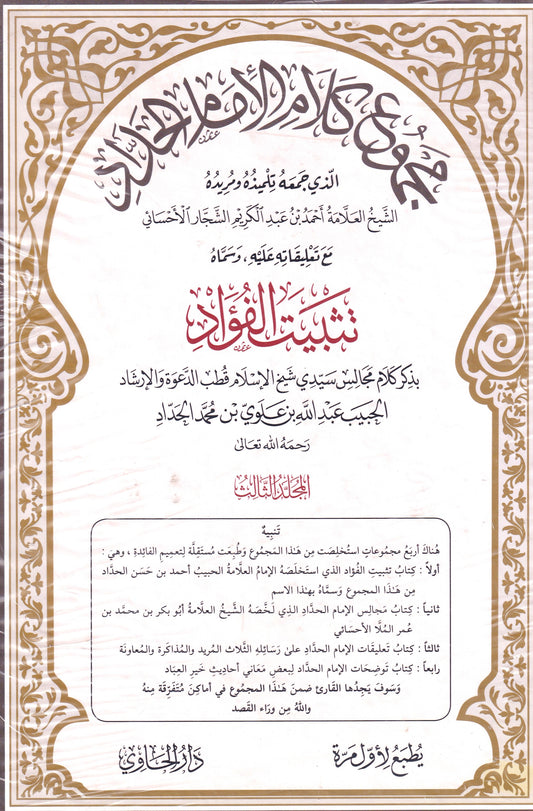 مجموع كلام الإمام الحداد
الذي جمعه تلميذه ومريده
الشيخ العلامة أحمد بن عبد الكريم الشجار الأحسائي
مع تعليقاته عليه، وسماه
تثبيت الفؤاد
بذكر كلام مجالس سيدي شيخ الإسلام قطب الدعوة والإرشاد
الحبيب عبد الله بن علوي بن محمد الحداد
رحمه الله تعالى
المجلد الثالث
تنبيه
هناك أربع مجموعات استخلصت من هذا المجموع وطبعت مستقلة لتعميم الفائدة، وهي:
أولاً: كتاب تثبيت الفؤاد الذي استخلصه الإمام العلامة الحبيب أحمد بن حسن الحداد
من هذا المجموع وسماه بهذا الاسم
ثانياً: كتاب مجالس الإمام الحداد الذي لخصه الشيخ العلامة أبو بكر بن محمد بن
عمر الملا الأحسائي
ثالثاً: كتاب تعليقات الإمام الحداد على رسائله الثلاث المريد والمذاكرة والمعاونة
رابعاً: كتاب توضحات الإمام الحداد لبعض معاني أحاديث خير العباد
وسوف يجدها القارئ ضمن هذا المجموع في أماكن متفرقة منه
والله من وراء القصد
يطبع لأول مرة
دار الحاوي